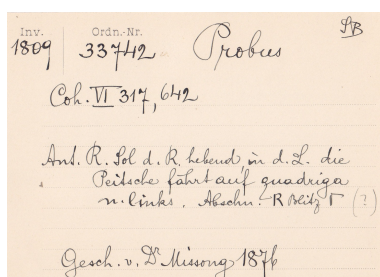 Inv. Ordn.-Nr. SB
1809 33742 Probus
Coh. VI 317, 642
Ant. R. Sol d. R. hebend in d. L. die
Peitsche fährt auf quadriga
n. links. Abschn. R Blitz Γ (?)
Gesch. v. Dr Missong 1876